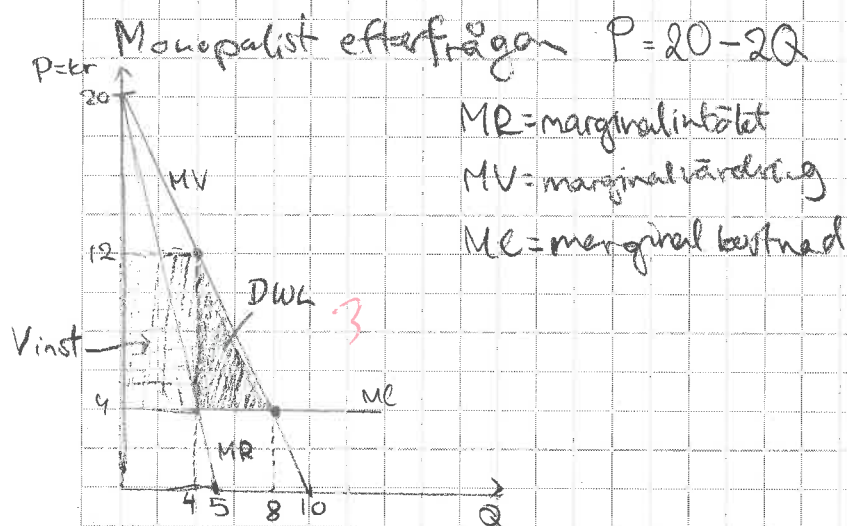 Monopolist efterfrågan P=20-2Q
P=kr
20
MR=marginalintäkt
MV
MV=marginalvärdering
12
MC=marginal kostnad
DWL
3
Vinst
4
MC
MR
4 5 8 10
Q